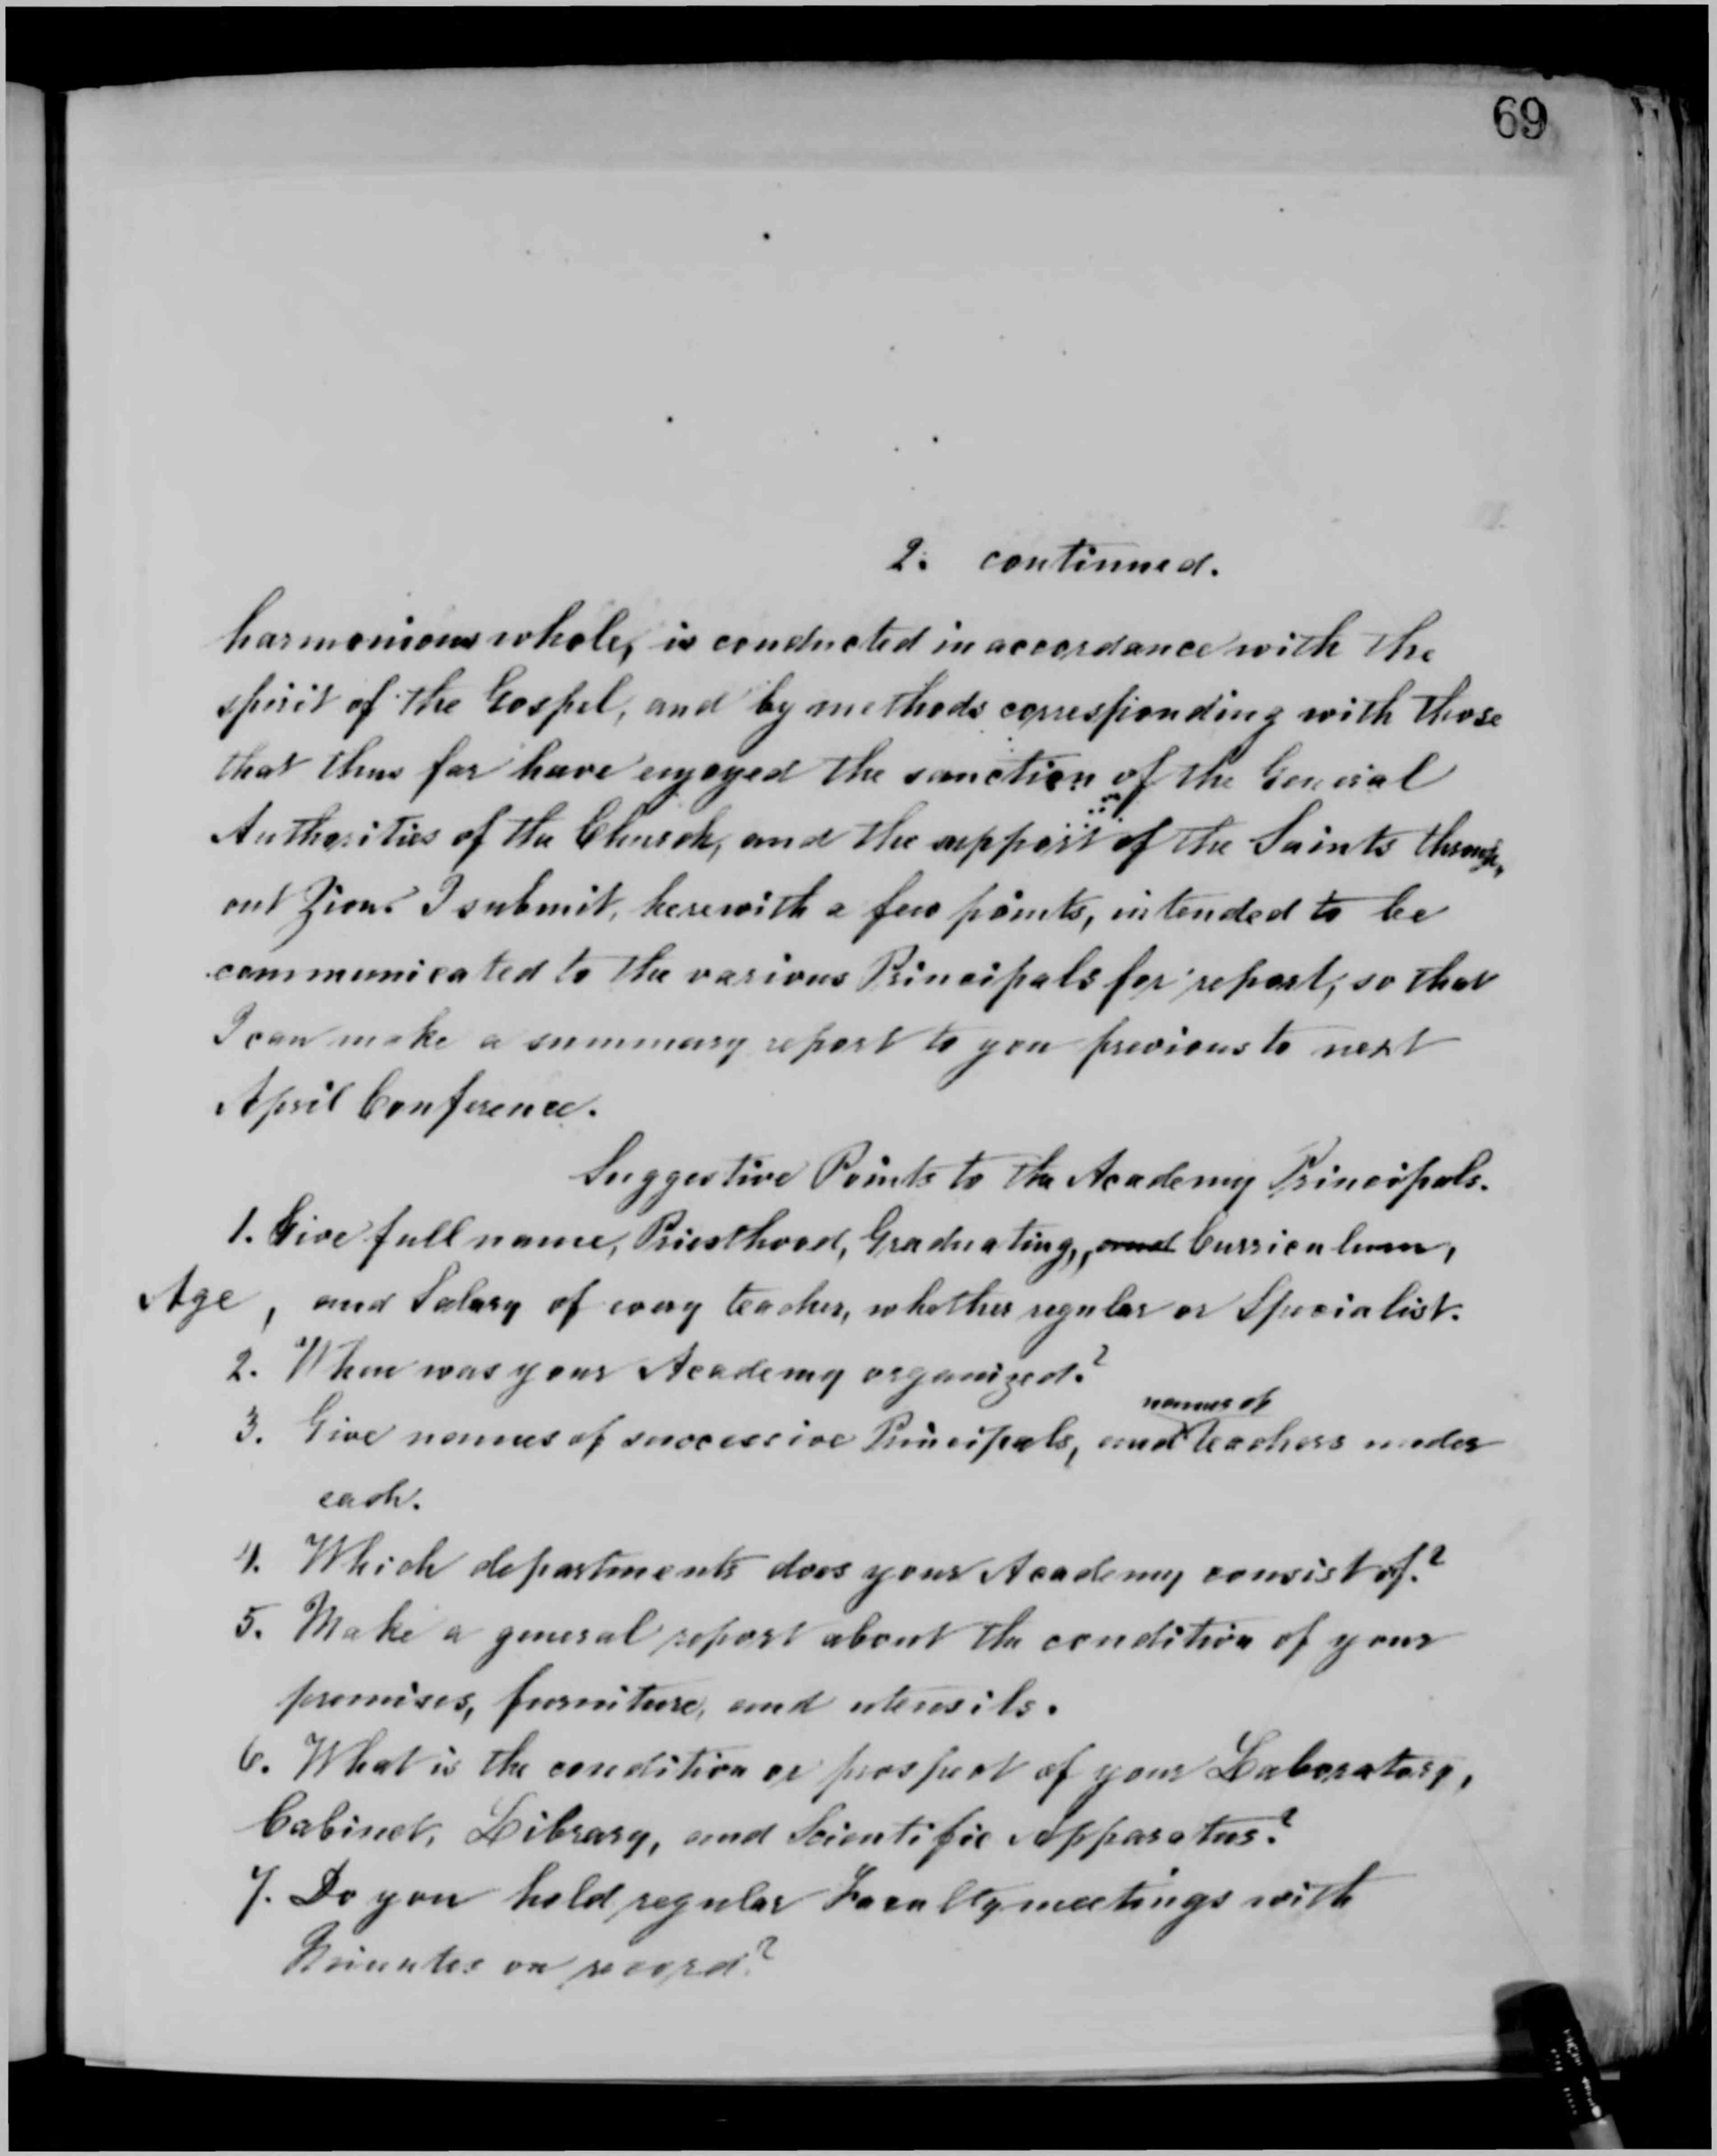 69
2. continued.
harmonious whole, is conducted in accordance with the
spirit of the Gospel, and by methods corresponding with those
that thus far have enjoyed the sanction of the General
Authorities of the Church, and the support of the Saints through-
out Zion. I submit, herewith a few points, intended to be
communicated to the various Principals for report, so that
I can make a summary report to you previous to next
April Conference.
Suggestive Points to the Academy Principals.
1. Give full name, Priesthood, Graduating, and Curriculum,
Age, and Salary of every teacher, whether regular or Specialist.
2. When was your Academy organized?
names of
3. Give names of successive Principals, and teachers under
each.
4. Which departments does your Academy consist of?
5. Make a general report about the condition of your
premises, furniture, and utensils.
6. What is the condition or prospect of your Laboratory,
Cabinet, Library, and Scientific Apparatus?
7. Do you hold regular Faculty meetings with
Minutes on record?